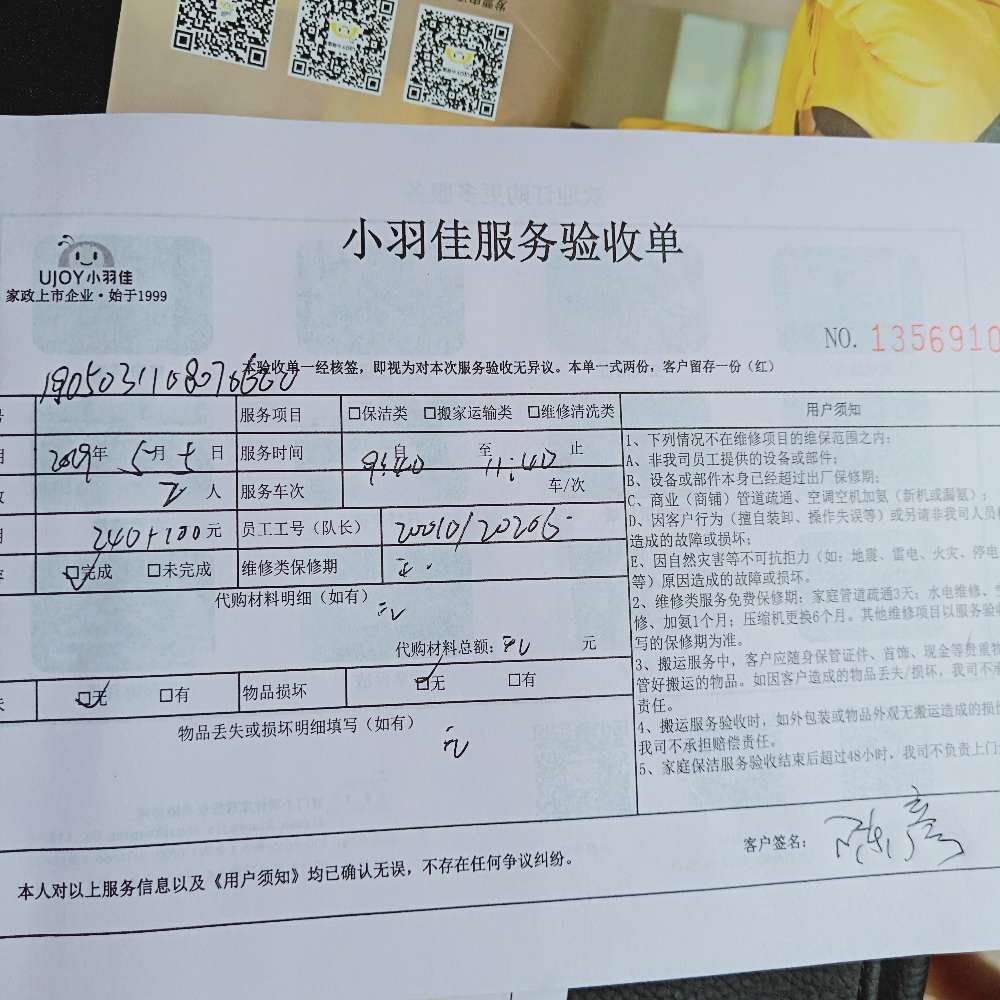 小羽佳服务验收单
UJOY小羽佳
家政上市企业·始于1999
NO. 1356910
本验收单一经核签，即视为对本次服务验收无异议。本单一式两份，客户留存一份（红）
服务项目 □保洁类 □搬家运输类 □维修清洗类
2019年 5月 5日 服务时间 自 9:40 至 11:40 止
2人 服务车次 车/次
240+100元 员工工号（队长） 20010/20206
☑完成 □未完成 维修类保修期 无
代购材料明细（如有）
无
代购材料总额: 无 元
☑无 □有 物品损坏 ☑无 □有
物品丢失或损坏明细填写（如有）
无
用户须知
1、下列情况不在维修项目的维保范围之内:
A、非我司员工提供的设备或部件;
B、设备或部件本身已经超过出厂保修期;
C、商业（商铺）管道疏通、空调空机加氨（新机或漏氨）;
D、因客户行为（擅自装卸、操作失误等）或另请非我司人员
造成的故障或损坏;
E、因自然灾害等不可抗拒力（如: 地震、雷电、火灾、停电
等）原因造成的故障或损坏.
2、维修类服务免费保修期: 家庭管道疏通3天; 水电维修、
修、加氨1个月; 压缩机更换6个月。其他维修项目以服务验
写的保修期为准。
3、搬运服务中，客户应随身保管证件、首饰、现金等贵重物
管好搬运的物品。如因客户造成的物品丢失/损坏，我司不
责任。
4、搬运服务验收时，如外包装或物品外观无搬运造成的损
我司不承担赔偿责任。
5、家庭保洁服务验收结束后超过48小时，我司不负责上门
客户签名: 陈彦
本人对以上服务信息以及《用户须知》均已确认无误，不存在任何争议纠纷。